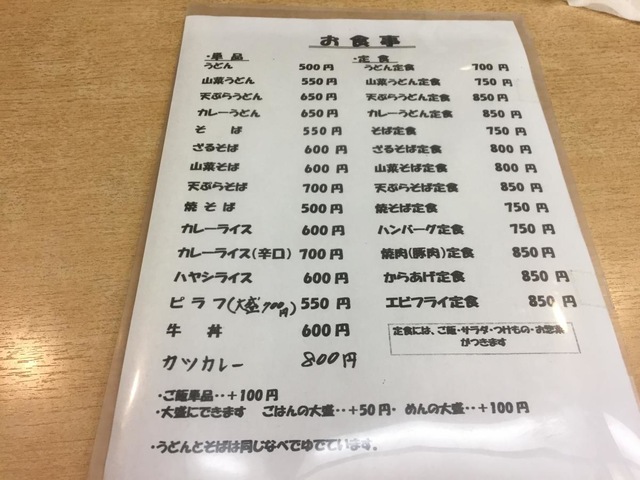 お食事
・単品
うどん 500円
山菜うどん 550円
天ぷらうどん 650円
カレーうどん 650円
そば 550円
ざるそば 600円
山菜そば 600円
天ぷらそば 700円
焼そば 500円
カレーライス 600円
カレーライス(辛口) 700円
ハヤシライス 600円
ピラフ(大盛700円) 550円
牛丼 600円
カツカレー 800円
・定食
うどん定食 700円
山菜うどん定食 750円
天ぷらうどん定食 850円
カレーうどん定食 850円
そば定食 750円
ざるそば定食 800円
山菜そば定食 800円
天ぷらそば定食 850円
焼そば定食 750円
ハンバーグ定食 750円
焼肉(豚肉)定食 850円
からあげ定食 850円
エビフライ定食 850円
定食には、ご飯・サラダ・つけもの・お惣菜
がつきます
・ご飯単品・・+100円
・大盛にできます ごはんの大盛・・+50円・ めんの大盛・・+100円
・うどんとそばは同じなべでゆでています。